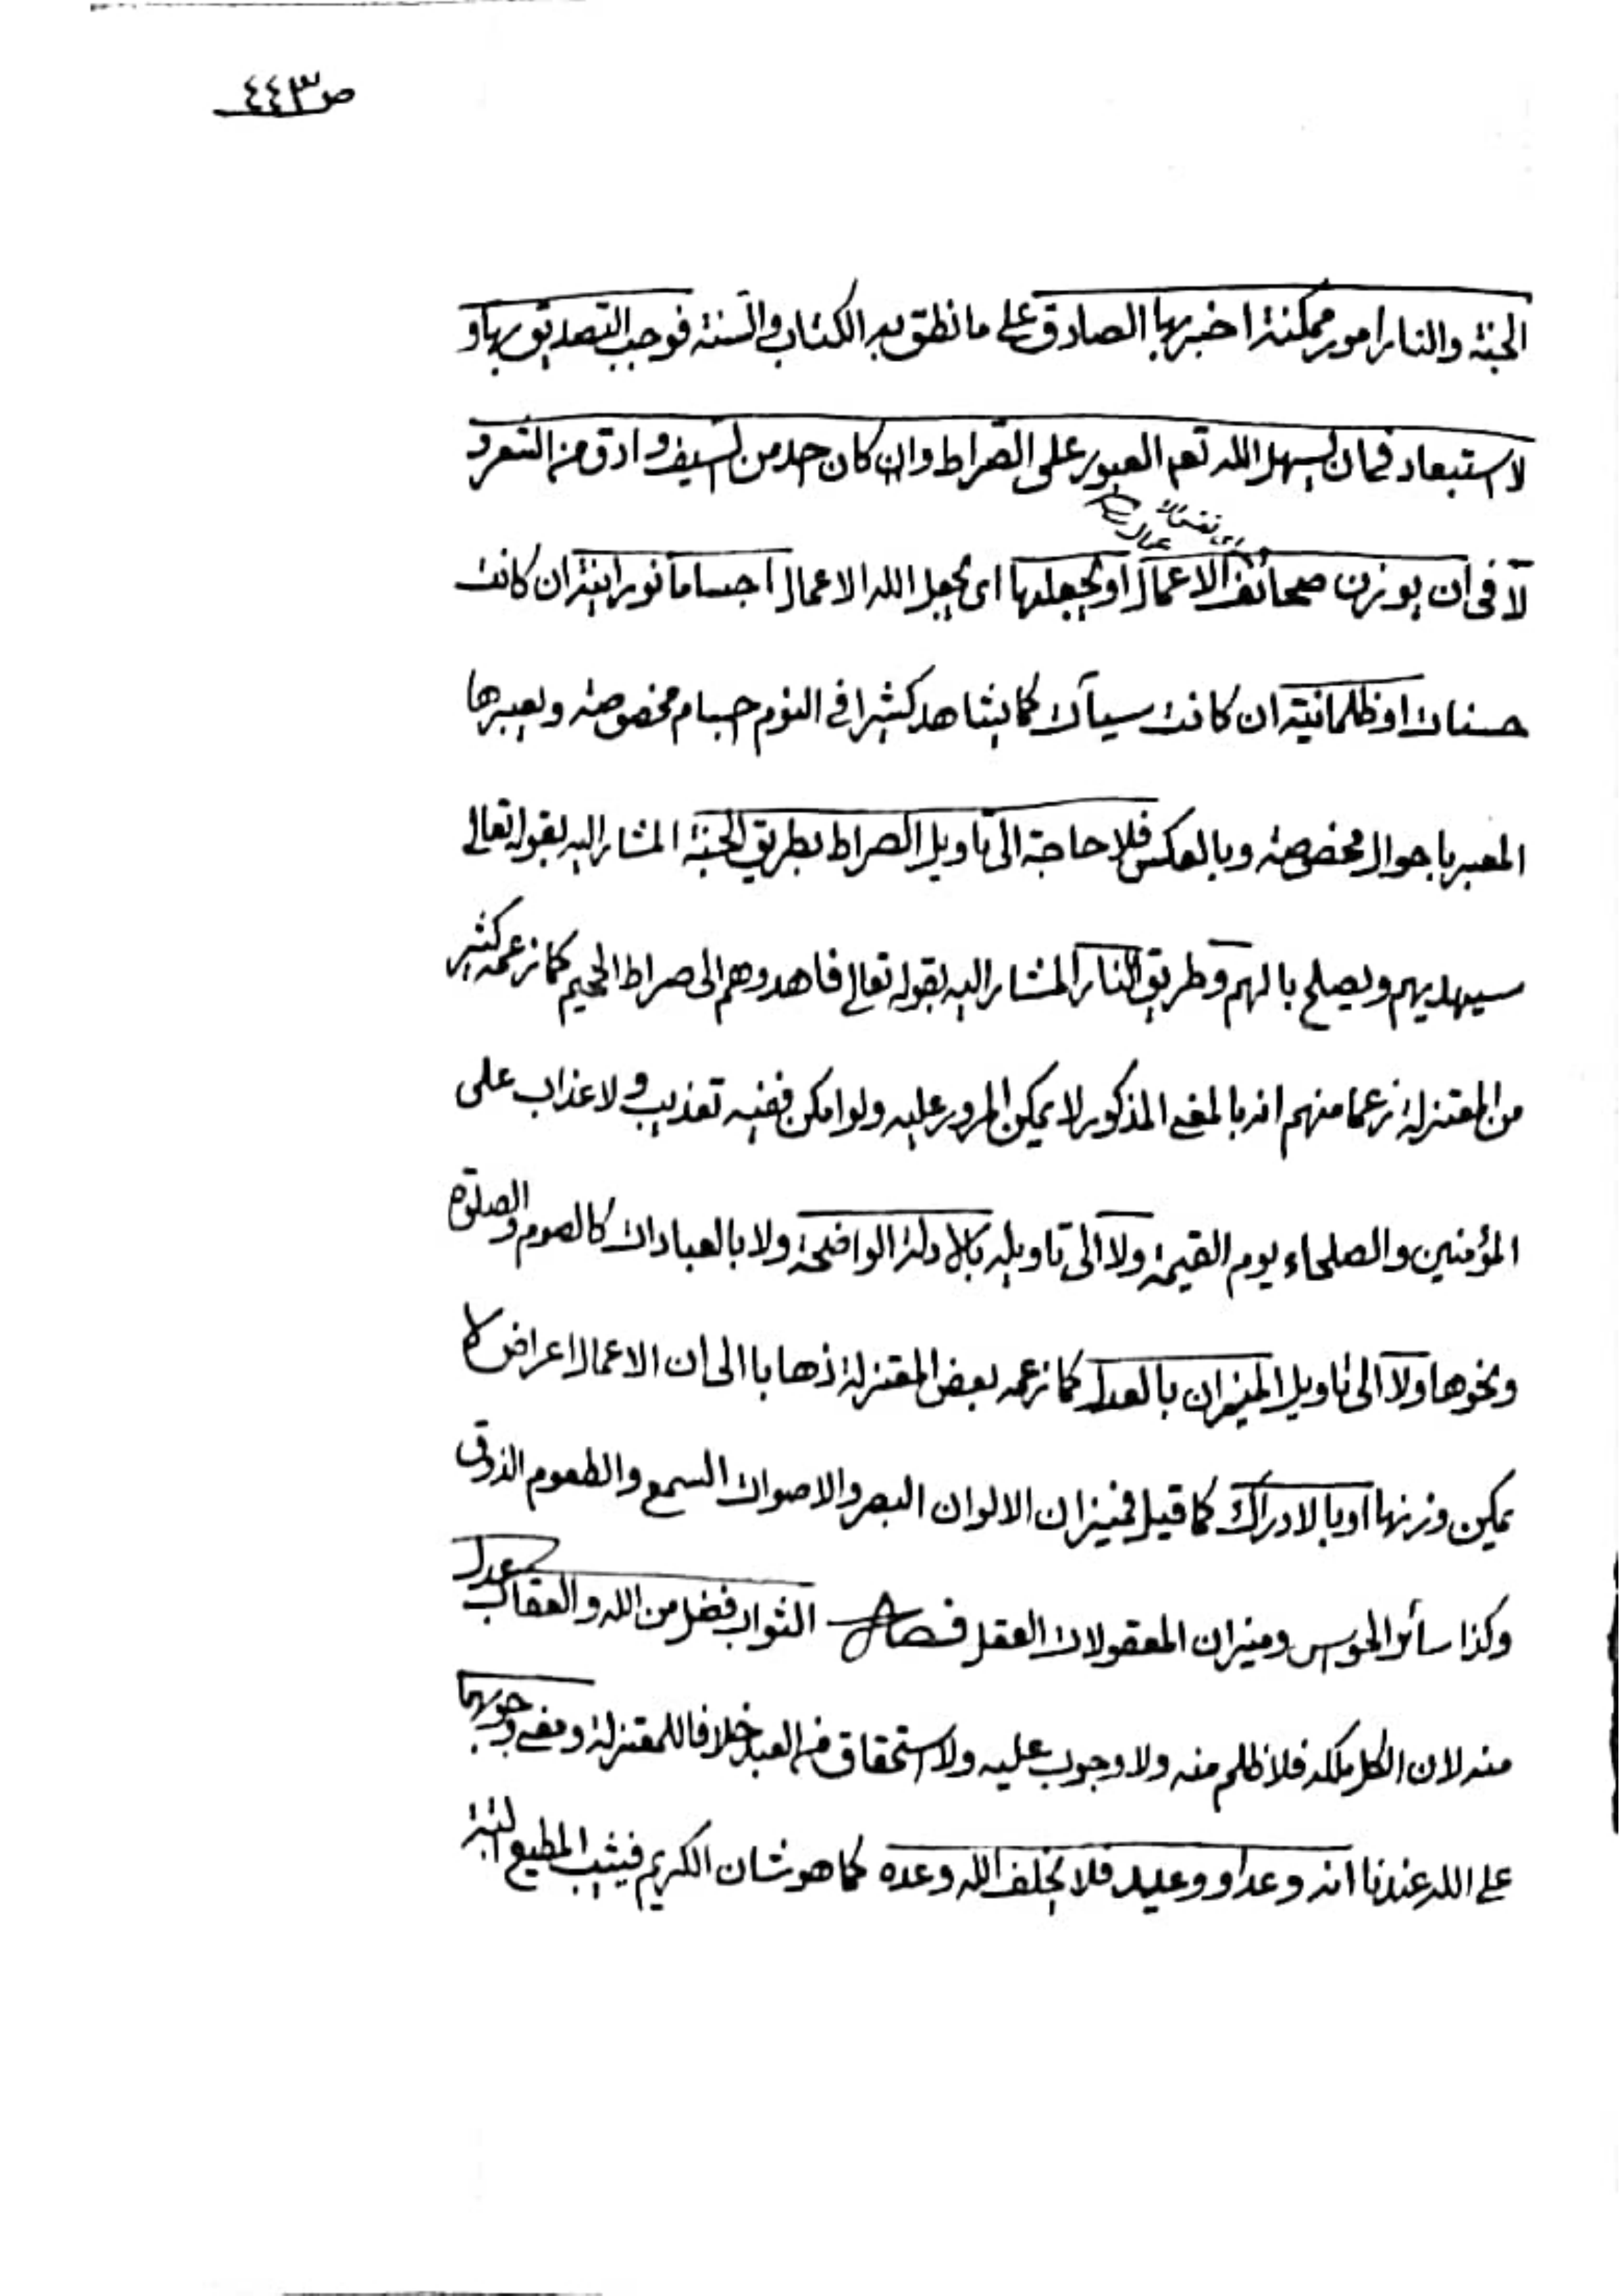 ص٤٤٣
الجنة والنار امور ممكنة اخبر بها الصادق على ما نطق به الكتاب والسنة فوجب التصديق بها و
لا استبعاد في ان يسهل الله تعم العبور على الصراط وان كان احد من السيف وادق من الشعر و
لا في ان يوزن صحائف الاعمال او يجعلها اى يجعل الله الاعمال اجساما نورانية ان كانت
حسنات او ظلمانية ان كانت سيآت كما يشاهد كثيرا في النوم اجسام مخصوصة ويعبرها
المعبر باحوال مخصوصة وبالعكس فلا حاجة الى تاويل الصراط بطريق الجنة المشار اليه بقوله تعالى
سيهديهم ويصلح بالهم وطريق النار المشار اليه بقوله تعالى فاهدوهم الى صراط الجحيم كما زعمه كثير
من المعتزلة زعما منهم انه بالمعنى المذكور لا يمكن المرور عليه ولو امكن ففيه تعذيب ولا عذاب على
المؤمنين والصلحاء يوم القيمة ولا الى تاويله بالادلة الواضحة ولا بالعبادات كالصوم والصلوة
ونحوها ولا الى تاويل الميزان بالعدل كما زعمه بعض المعتزلة ذهابا الى ان الاعمال اعراض لا
يمكن وزنها او بالادراك كما قيل فميزان الالوان البصر والاصوات السمع والطعوم الذوق
وكذا سائر الحواس وميزان المعقولات العقل فصل الثواب فضل من الله والعقاب عدل
منه لان الكل ملكه فلا ظلم منه ولا وجوب عليه ولا استحقاق من العبد خلافا للمعتزلة ومعنى وجوبهما
على الله عندنا انه وعد او وعيد فلا يخلف الله وعده كما هو شان الكريم فيثيب المطيع البتة